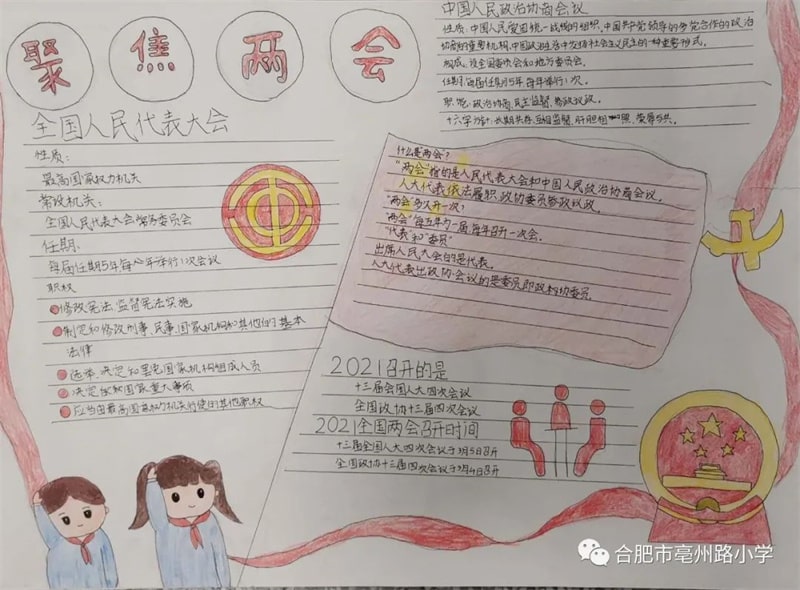 聚焦两会
全国人民代表大会
性质:
最高国家权力机关
常设机关:
全国人民代表大会常务委员会
任期:
每届任期5年每年举行1次会议
职权
修改宪法 监督宪法实施
制定和修改刑事、民事、国家机构和其他的基本
法律
选举、决定和罢免国家机构组成人员
决定国家重大事项
应当由最高国家权力机关行使的其他职权
中国人民政治协商会议
性质:中国人民爱国统一战线的组织,中国共产党领导的多党合作的政治
协商的重要机构,中国政治生活中发扬社会主义民主的一种重要形式。
构成:设全国委员会和地方委员会。
任期:每届任期5年,每年举行1次。
职能:政治协商,民主监督,参政议政。
十六字方针:长期共存,互相监督,肝胆相照,荣辱与共。
什么是"两会"?
"两会"指的是人民代表大会和中国人民政治协商会议。
人大代表依法履职,政协委员参政议政。
"两会"多久开一次?
"两会"每五年为一届,每年召开一次会。
"代表"和"委员"
出席人民大会的是代表。
人大代表出政协会议的是委员即政协委员
2021召开的是
十三届全国人大四次会议
全国政协十三届四次会议
2021全国两会召开时间
十三届全国人大四次会议于3月5日召开
全国政协十三届四次会议于3月4日召开
合肥市亳州路小学